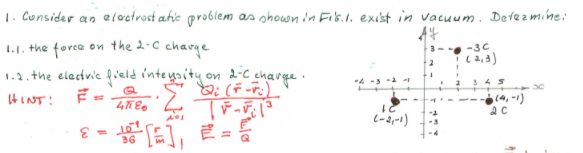 1. Consider an electrostatic problem as shown in Fig.1. exist in vacuum. Determine:
1.1. the force on the 2-C charge
1.2. the electric field intensity on 2-C charge.
HINT: F̄ = Q/4πε₀ · Σ i=1 n Qi (r̄ - r̄i) / |r̄ - r̄i|³
ε = 10⁻⁹/36 [F/m], Ē = F̄/Q
y
3
-3C
(2,3)
2
1
-4 -3 -2 -1 1 2 3 4 5 x
-1
1C
(-2,-1)
(4,-1)
2C
-2
-3
-4